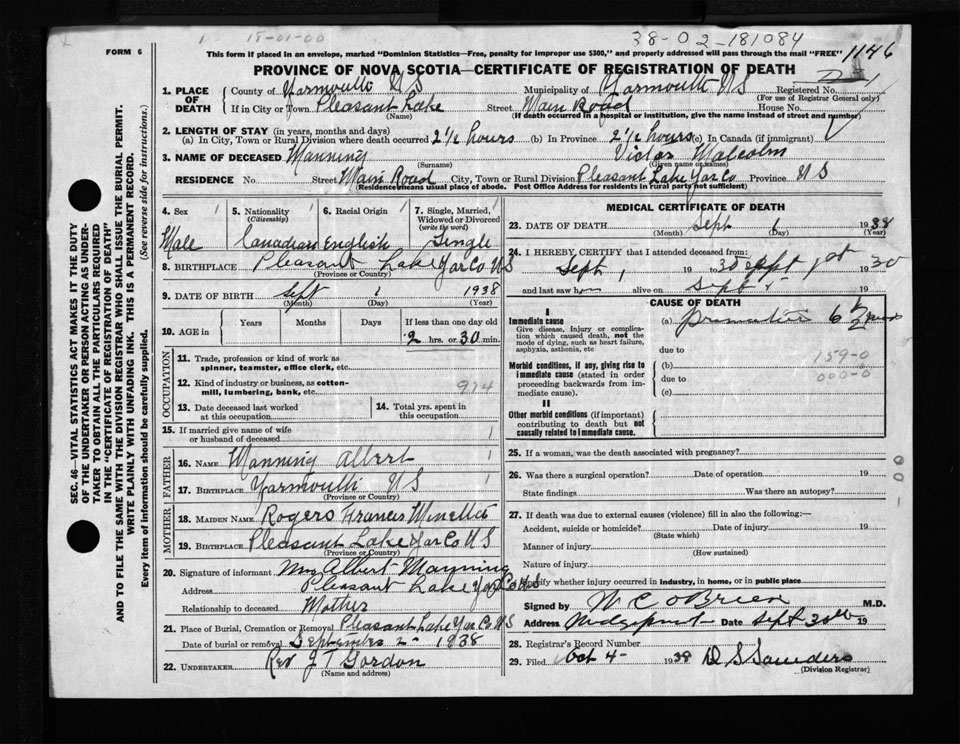 15-01-00
38-02-181084
FORM 6
This form if placed in an envelope, marked "Dominion Statistics—Free, penalty for improper use $300," and properly addressed will pass through the mail "FREE"
1146
PROVINCE OF NOVA SCOTIA—CERTIFICATE OF REGISTRATION OF DEATH
SEC. 46—VITAL STATISTICS ACT MAKES IT THE DUTY
OF THE UNDERTAKER OR PERSON ACTING AS UNDER-
TAKER TO OBTAIN ALL THE PARTICULARS REQUIRED
IN THE "CERTIFICATE OF REGISTRATION OF DEATH"
AND TO FILE THE SAME WITH THE DIVISION REGISTRAR WHO SHALL ISSUE THE BURIAL PERMIT.
WRITE PLAINLY WITH UNFADING INK. THIS IS A PERMANENT RECORD.
Every item of information should be carefully supplied. (See reverse side for instructions.)
1. PLACE OF DEATH
County of Yarmouth N S Municipality of Yarmouth N S Registered No.
(For use of Registrar General only)
If in City or Town Pleasant Lake Street Main Road House No.
(Name) (If death occurred in a hospital or institution, give the name instead of street and number)
2. LENGTH OF STAY (in years, months and days)
(a) In City, Town or Rural Division where death occurred 2½ hours (b) In Province 2½ hours (c) In Canada (if immigrant)
3. NAME OF DECEASED Manning Victor Malcolm
(Surname) (Given name or names)
RESIDENCE No Street Main Road City, Town or Rural Division Pleasant Lake Yar Co Province N S
(Residence means usual place of abode. Post Office Address for residents in rural parts not sufficient)
4. Sex 5. Nationality (Citizenship) 6. Racial Origin 7. Single, Married, Widowed or Divorced (write the word)
Male Canadian English Single
8. BIRTHPLACE Pleasant Lake Yar Co N S
(Province or Country)
9. DATE OF BIRTH Sept 1 1938
(Month) (Day) (Year)
10. AGE in Years Months Days If less than one day old
2 hrs. or 30 min.
OCCUPATION
11. Trade, profession or kind of work as
spinner, teamster, office clerk, etc.
12. Kind of industry or business, as cotton-
mill, lumbering, bank, etc. 914
13. Date deceased last worked at this occupation
14. Total yrs. spent in this occupation
15. If married give name of wife
or husband of deceased
FATHER
16. NAME Manning Albert
17. BIRTHPLACE Yarmouth N S
(Province or Country)
MOTHER
18. MAIDEN NAME Rogers Francis Minetta
19. BIRTHPLACE Pleasant Lake Yar Co N S
(Province or Country)
20. Signature of informant Mrs Albert Manning
Address Pleasant Lake Yar Co N S
Relationship to deceased Mother
21. Place of Burial, Cremation or Removal Pleasant Lake Yar Co N S
Date of burial or removal September 2 1938
22. UNDERTAKER Rev J T Gordon
(Name and address)
MEDICAL CERTIFICATE OF DEATH
23. DATE OF DEATH Sept 1 1938
(Month) (Day) (Year)
24. I HEREBY CERTIFY that I attended deceased from:
Sept 1 19 to Sept 1st 19
and last saw h alive on Sept 1 19
CAUSE OF DEATH
I
Immediate cause
Give disease, injury or complica-
tion which caused death, not the
mode of dying, such as heart failure,
asphyxia, asthenia, etc
(a) Premature 6 mos
due to
Morbid conditions, if any, giving rise to
immediate cause (stated in order
proceeding backwards from im-
mediate cause).
159-0
(b)
000-0
due to
(c)
II
Other morbid conditions (if important)
contributing to death but not
causally related to immediate cause.
25. If a woman, was the death associated with pregnancy?
26. Was there a surgical operation? Date of operation 19
State findings Was there an autopsy?
27. If death was due to external causes (violence) fill in also the following:—
Accident, suicide or homicide? Date of injury 19
(State which)
Manner of injury
(How sustained)
Nature of injury
Specify whether injury occurred in industry, in home, or in public place
Signed by W C O'Brien M.D.
Address Wedgeport Date Sept 30th 19
28. Registrar's Record Number
29. Filed Oct 4 - 1938 D S Saunders
(Division Registrar)